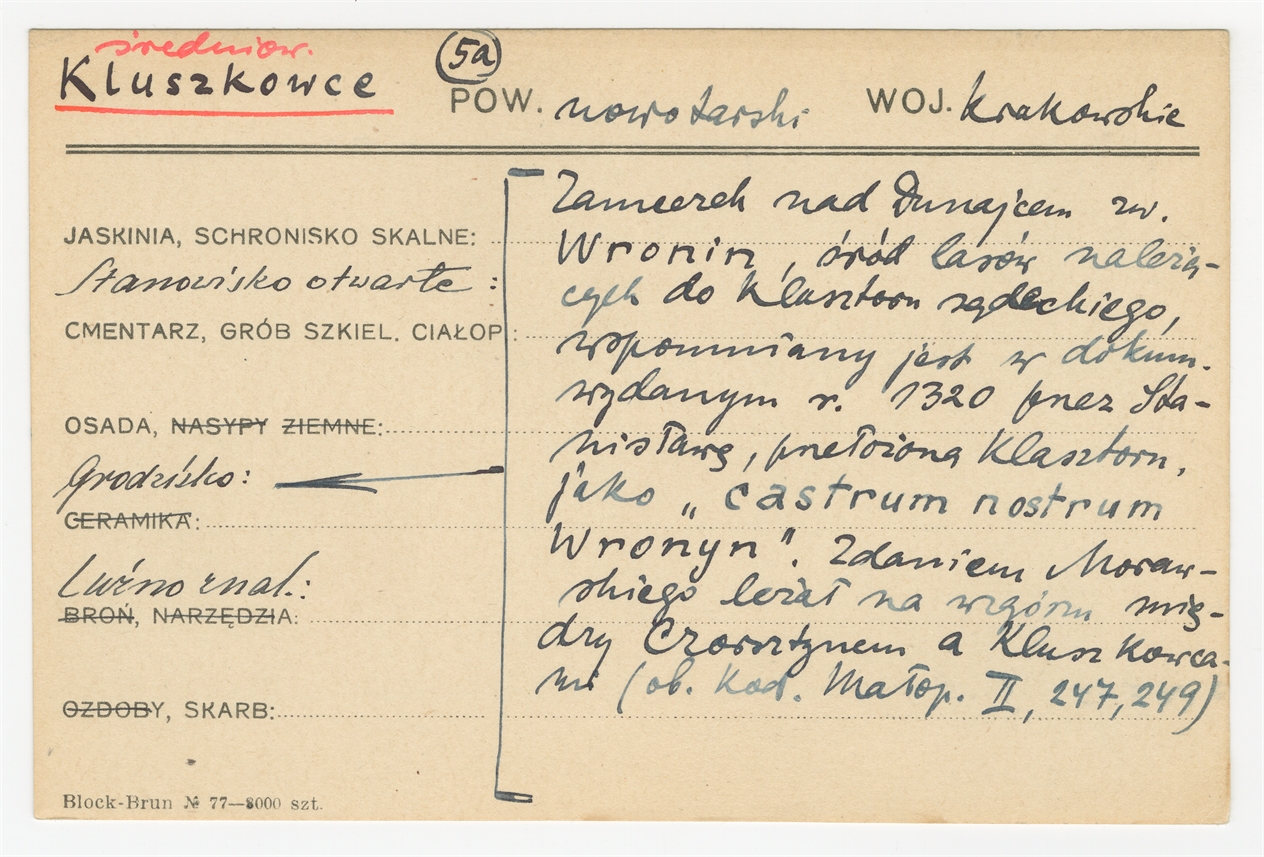 średniow.
Kluszkowce
5a
POW. nowotarski WOJ. krakowskie
JASKINIA, SCHRONISKO SKALNE:
Stanowisko otwarte :
CMENTARZ, GRÓB SZKIEL. CIAŁOP.:
OSADA, NASYPY ZIEMNE:
Grodzisko:
CERAMIKA:
Luźno znal.:
BROŃ, NARZĘDZIA:
OZDOBY, SKARB:
Block-Brun № 77—3000 szt.
Zameczek nad Dunajcem zw.
Wronin, śród lasów należą-
cych do Klasztoru sądeckiego,
wspomniany jest w dokum.
wydanym r. 1320 przez Sta-
nisławę, przełożoną Klasztoru,
jako „castrum nostrum
Wronyn". Zdaniem Moraw-
skiego leżał na wzgórzu mię-
dzy Czorsztynem a Kluszkowca-
mi (ob. Kod. Małop. II, 247, 249)